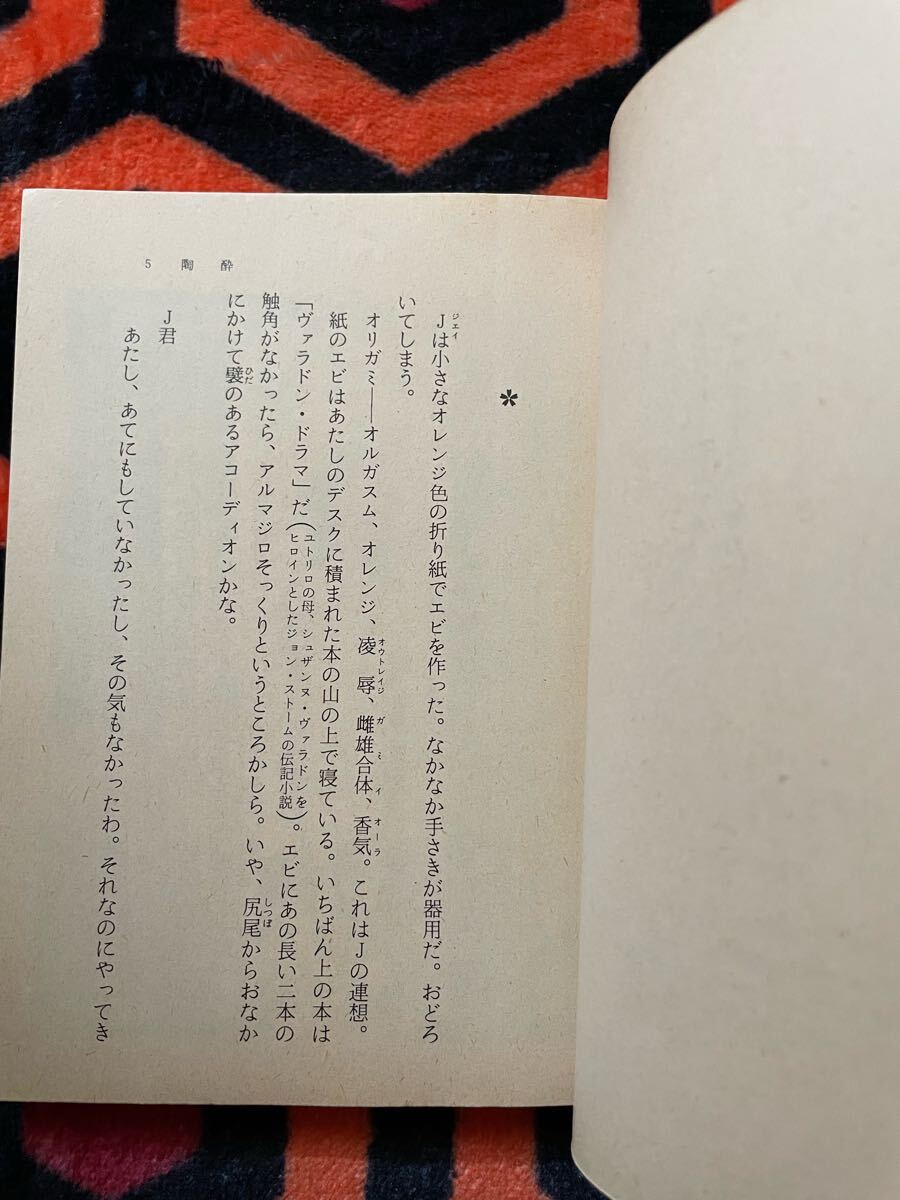 5 陶酔
✽
Jは小さなオレンジ色の折り紙でエビを作った。なかなか手さきが器用だ。おどろ
いてしまう。
オリガミ――オルガスム、オレンジ、凌辱、雌雄合体、香気。これはJの連想。
紙のエビはあたしのデスクに積まれた本の山の上で寝ている。いちばん上の本は
「ヴァラドン・ドラマ」だ(ユトリロの母、シュザンヌ・ヴァラドンを
ヒロインとしたジョン・ストームの伝記小説)。エビにあの長い二本の
触角がなかったら、アルマジロそっくりというところかしら。いや、尻尾からおなか
にかけて襞のあるアコーディオンかな。
J君
あたし、あてにもしていなかったし、その気もなかったわ。それなのにやってき